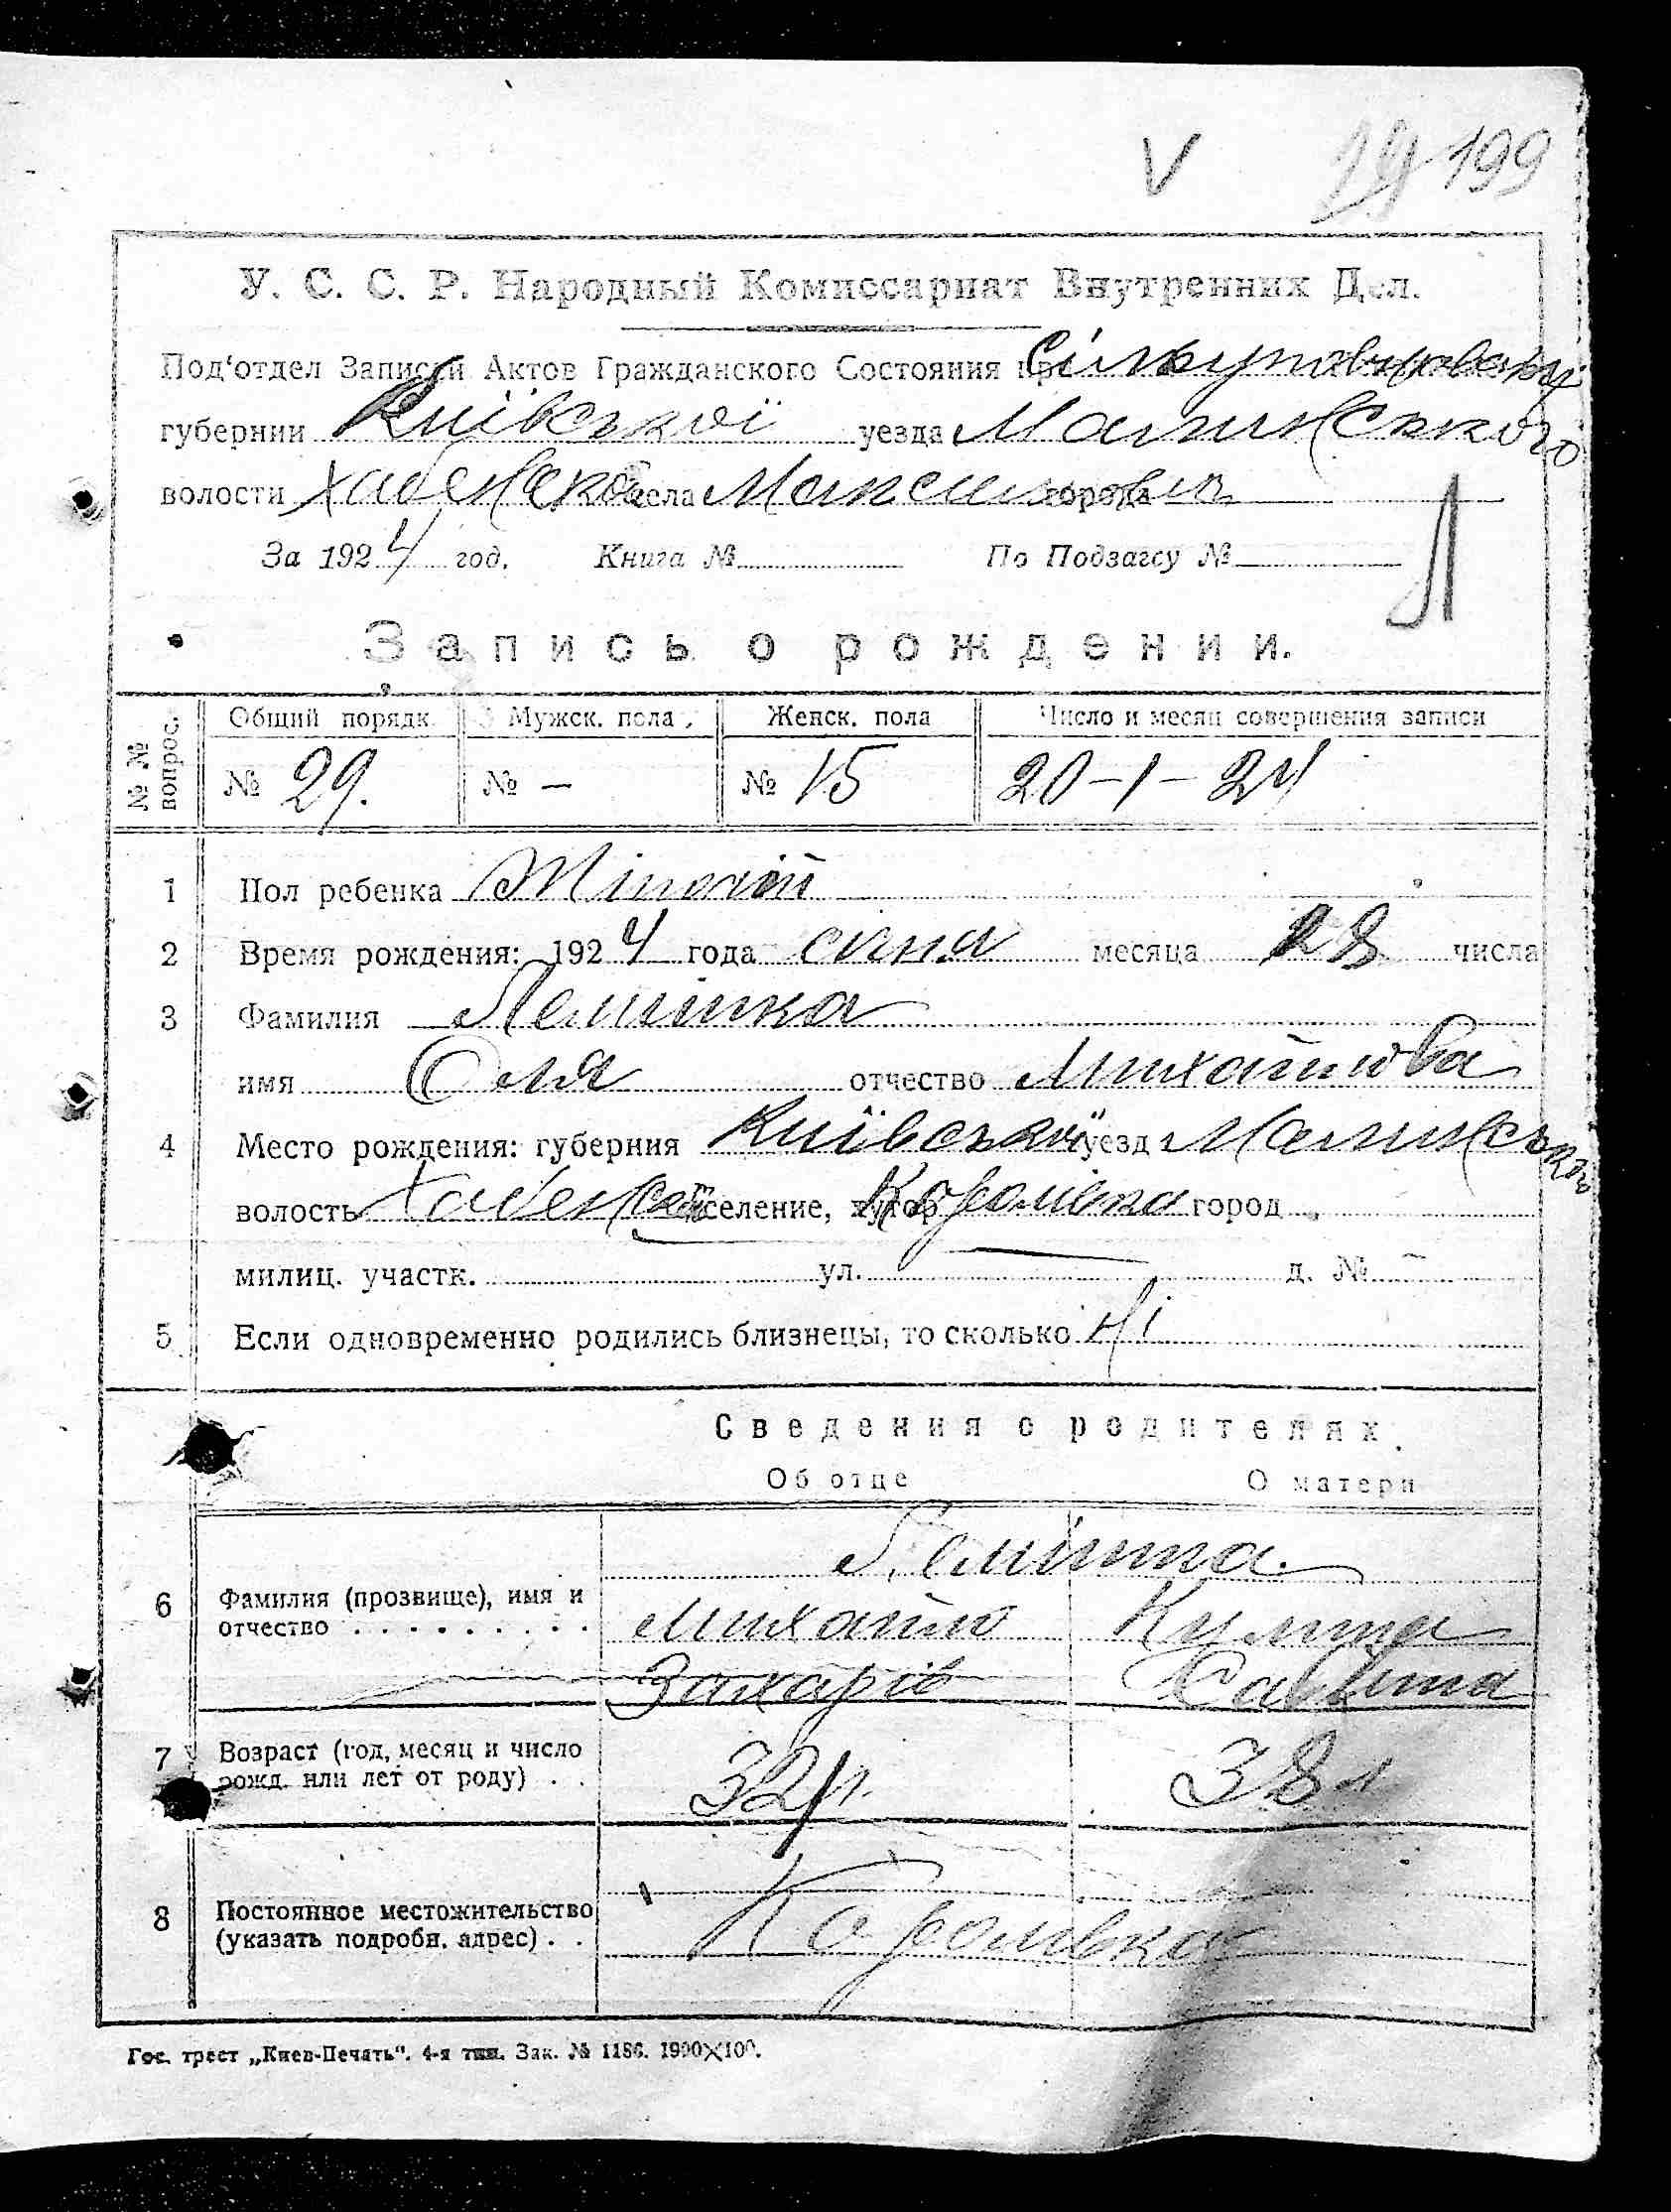 V 29 199
У. С. С. Р. Народный Комиссариат Внутренних Дел.
Под'отдел Записи Актов Гражданского Состояния при
губернии Київської уезда Малинського
волости Хабенської села Максимович города
Л
За 1924 год. Книга № По Подзагсу №
Запись о рождении.
№№ вопрос. Общий порядк. Мужск. пола. Женск. пола Число и месяц совершения записи
№ 29. № — № 15 20-1-24
1 Пол ребенка Жіночій
2 Время рождения: 1924 года січня месяца числа
3 Фамилия Лемішка
имя Оля отчество Михайлова
4 Место рождения: губерния Київської уезд Малинського
волость Хабенської селение, хутор Королівка город
милиц. участк. ул. д. № —
5 Если одновременно родились близнецы, то сколько Ні
Сведения о родителях.
Об отце О матери
Лемішка.
6 Фамилия (прозвище), имя и отчество . . . . . . . . . Михайло
Захарів
7 Возраст (год, месяц и число рожд. или лет от роду) . . 32 л. 38 л
8 Постоянное местожительство (указать подробн. адрес) . . Королівка
Гос. трест „Киев-Печать". 4-я тип. Зак. № 1186. 1900×100.